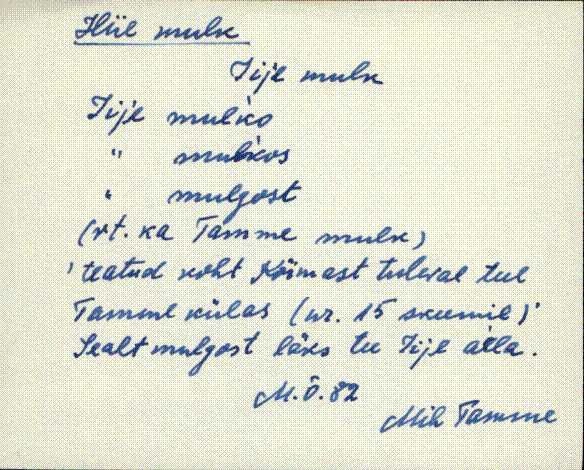 Hiie mulk
Iije mulk
Iije mulko
" mulkos
" mulgost
(vt. ka Tamme mulk)
'teatud koht Kõimast tuleval teel
Tamme külas (nr. 15 skeemil)'
Sealt mulgost läks tee Iije alla.
M.Õ.82
Mih Tamme